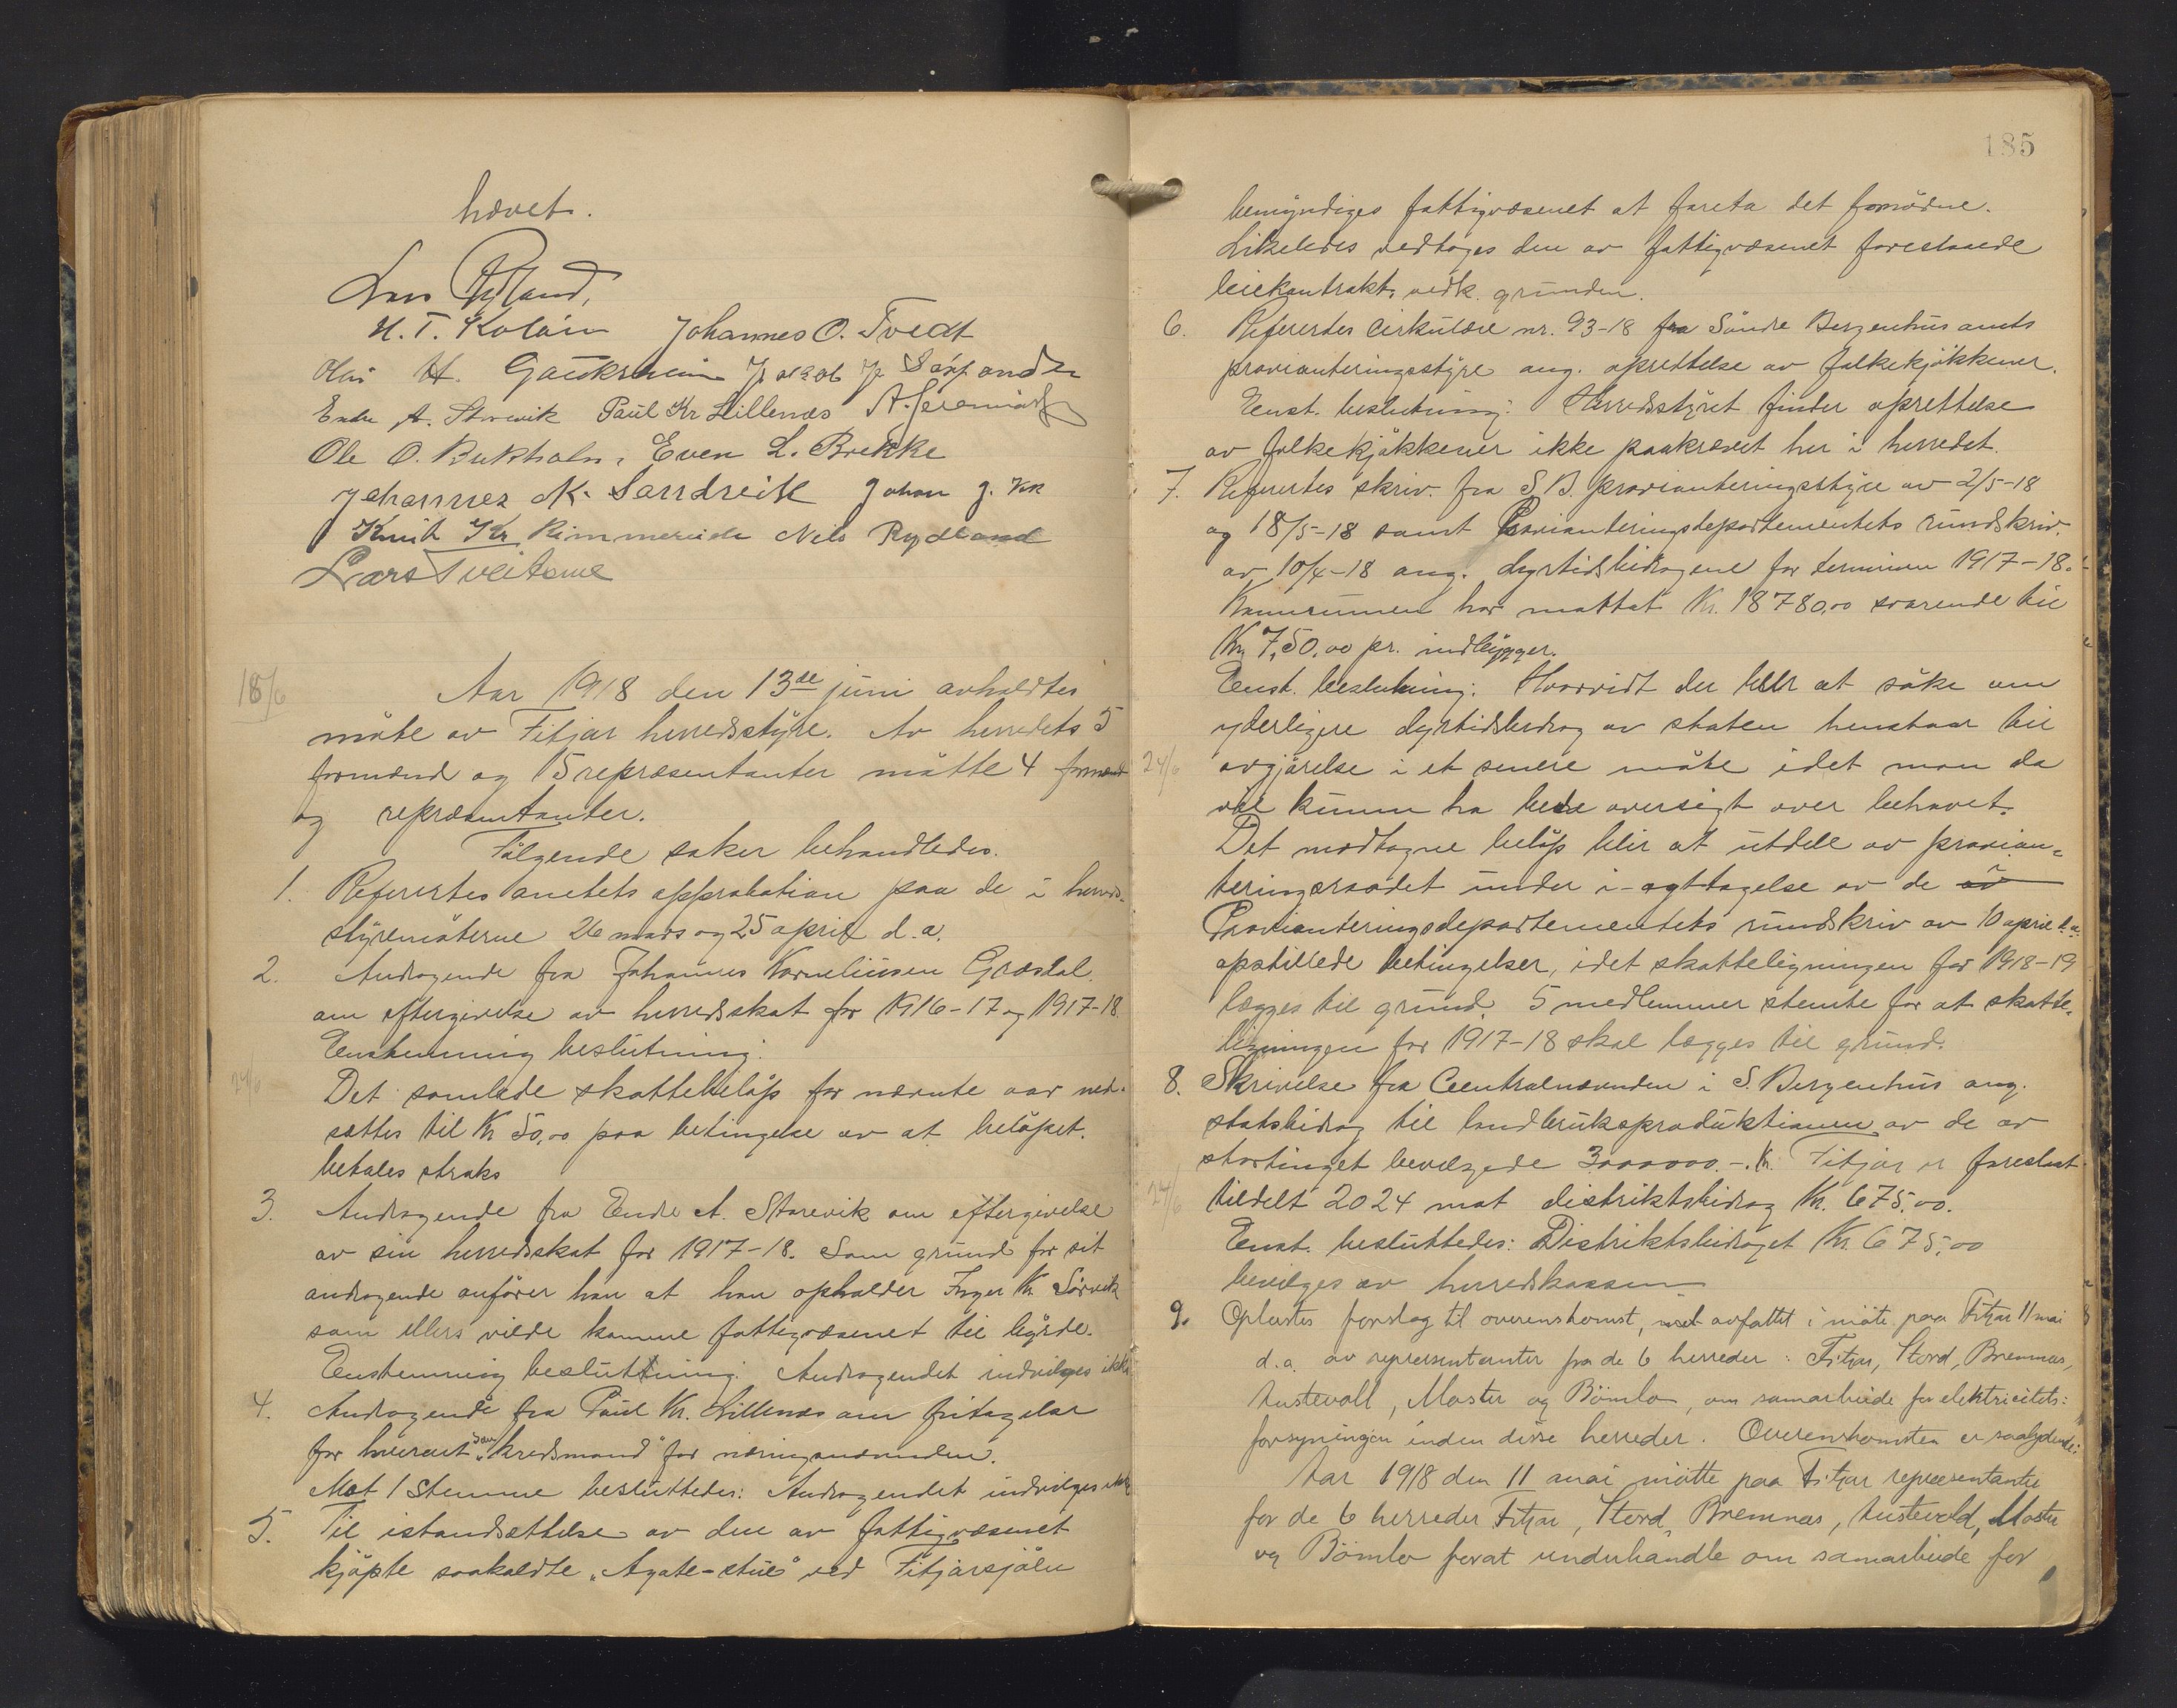 hævet.
Lars Rydland,
H. T. Koløen Johannes O. Tvedt
H. Gaukheim Jakob J. Sørfonden
Endre A. Storevik Paul Kr Lillenæs A. Jeremiassen
Ole O. Bukholm, Even L. Brekke
Johannes K. Sandvik Johan J.
Knut Kr Rimmereide Nils Rydland
Lars Tveiterne
18/6
Aar 1918 den 13de juni avholdtes
møte av Fitjar herredsstyre. Av herredets 5
formænd og 15 repræsentanter møtte 4 formænd
og repræsentanter.
Følgende saker behandledes.
1. Refertes amtets approbation paa de i herreds-
styremøterne 26 mars og 25 april d.a.
2. Andragende fra Johannes Korneliusen Græsdal
om eftergivelse av herredsskat for 1916-17 og 1917-18
Enstemmig beslutning:
24/6
Det samlede skattebeløp for nævnte aar ned-
sættes til Kr 50,00 paa betingelse av at beløpet.
betales straks
3. Andragende fra Endre A. Storevik om eftergivelse
av sin herredsskat for 1917-18. Som grund for sit
andragende anfører han at han opholder Inger K. Sørvik
som ellers vilde komme fattigvæsenet til byrde.
Enstemmig beslutning: Andragendet indvilges ikke
4. Andragende fra Paul Kr. Lillenæs om fritagelse
for hvervet som "kredsmand" for næringsnævnden.
Mot 1 stemme besluttedes: Andragendet indvilges ikke
5. Til istandsættelse av den av fattigvæsenet
kjøpte saakaldte "Agate-stue" ved Fitjarsjøen
185
bemyndiges fattigvæsenet at foreta det fornødne.
Likeledes vedtoges den av fattigvæsenet forestaaede
leiekontrakt, vedk. grunden.
6. Refertes cirkulære nr. 93-18 fra Søndre Bergenhus amts
provianteringsstyre ang. oprettelse av folkekjøkkener.
Enst. beslutning: Herredsstyret finder oprettelse
av folkekjøkkener ikke paakrævet her i herredet.
7. Refertes skriv. fra S.B. provianteringsstyre av 2/5-18
og 18/5-18 samt Provianteringsdepartementets rundskriv.
av 10/4-18 ang. dyrtidsbidragene for terminen 1917-18.-
Kommunen har mottat Kr. 18780,00 svarende til
Kr 7,50,00 pr. indbygger.
Enst. beslutning: Hvorvidt der blir at søke om
yderligere dyrtidsbidrag av staten henstaar til
24/6
avgjørelse i et senere møte idet man da
vil kunne ha bedre oversigt over behovet.
Det modtagne beløp blir at utdele av provian-
teringsraadet under i-agttagelse av de av
Provianteringsdepartementets rundskriv av 10 april d.a.
opstillede betingelser, idet skatteligningen for 1918-19
lægges til grund. 5 medlemmer stemte for at skatte-
ligningen for 1917-18 skal lægges til grund.
8. Skrivelse fra Centralnævnden i S. Bergenhus ang.
statsbidrag til landbruksproduktionen av de av
stortinget bevilgede 3000000.-. Kr. Fitjar er foreslaat
24/6
tildelt 2024 mot distriktsbidrag Kr. 675.00.
Enst. besluttedes: Distriktsbidraget Kr. 675,00
bevilges av herredskassen
9. Oplæstes forslag til overenskomst, avfattet i møte paa Fitjar 11 mai
d.a. av repræsentanter fra de 6 herreder: Fitjar, Stord, Bremnes,
Austevoll, Moster og Bömlo, om samarbeide for elektricitets:
forsyningen inden disse herreder. Overenskomsten er saalydende:
Aar 1918 den 11 mai møtte paa Fitjar repræsentanter
for de 6 herreder Fitjar, Stord, Bremnes, Austevold, Moster
og Bömlo forat underhandle om samarbeide for